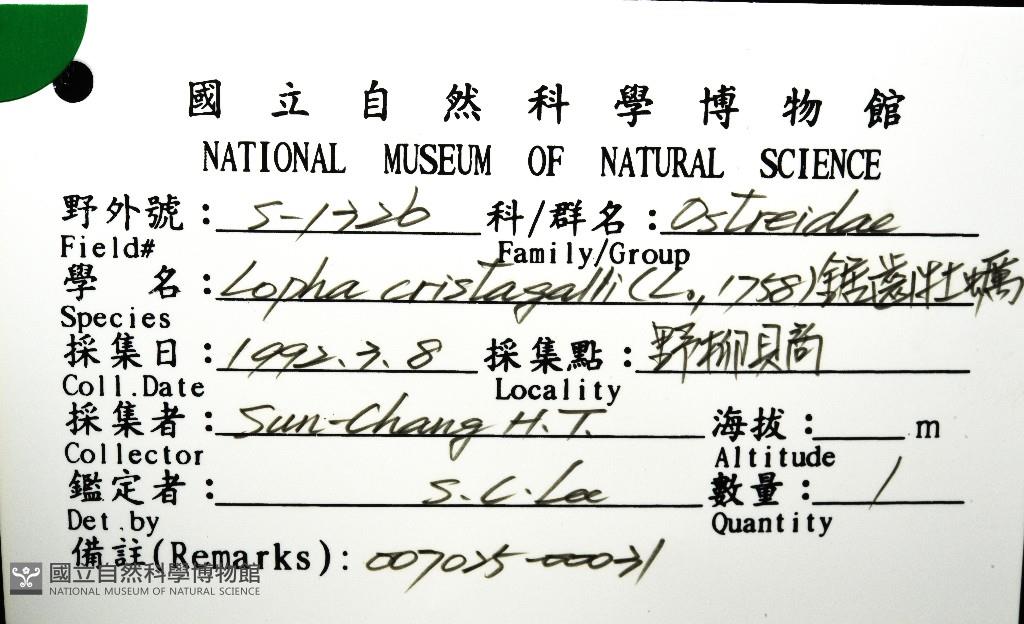 國立自然科學博物館
NATIONAL MUSEUM OF NATURAL SCIENCE
野外號: S-1326 科/群名: Ostreidae
Field# Family/Group
學名: Lopha cristagalli (L., 1758) 鋸齒牡蠣
Species
採集日: 1992.3.8 採集點: 野柳貝商
Coll.Date Locality
採集者: Sun-Chang H.T. 海拔: m
Collector Altitude
鑑定者: S.C.Lee 數量: 1
Det.by Quantity
備註(Remarks): 007035-00031
國立自然科學博物館
NATIONAL MUSEUM OF NATURAL SCIENCE